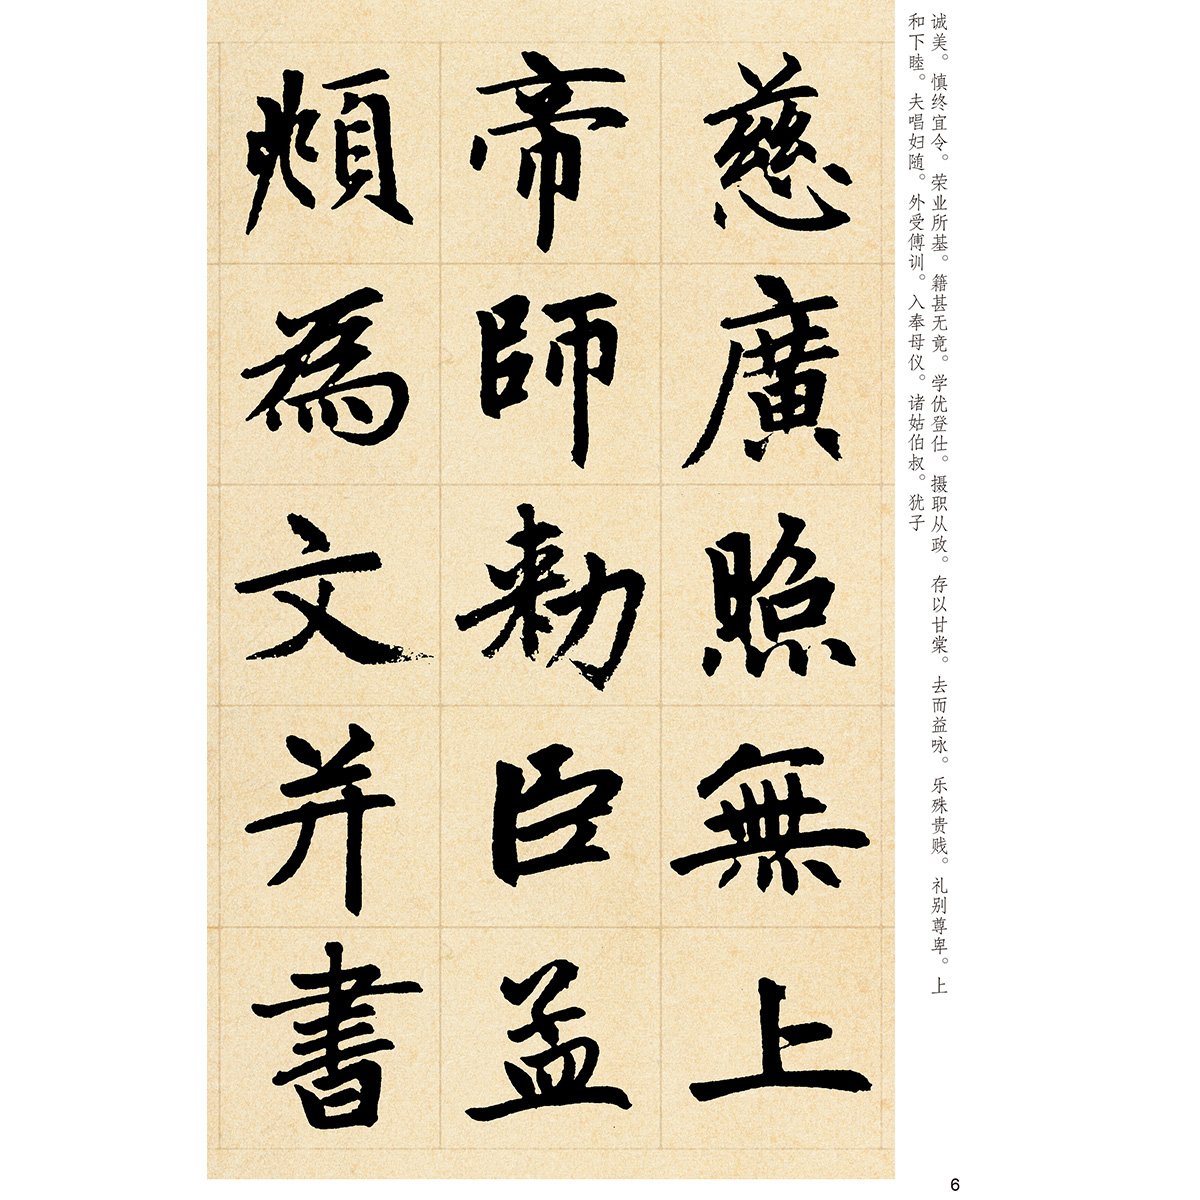 诚美。慎终宜令。荣业所基。籍甚无竟。学优登仕。摄职从政。存以甘棠。去而益咏。乐殊贵贱。礼别尊卑。上
和下睦。夫唱妇随。外受傅训。入奉母仪。诸姑伯叔。犹子
慈廣照無上
帝師勅臣孟
頫為文并書
6